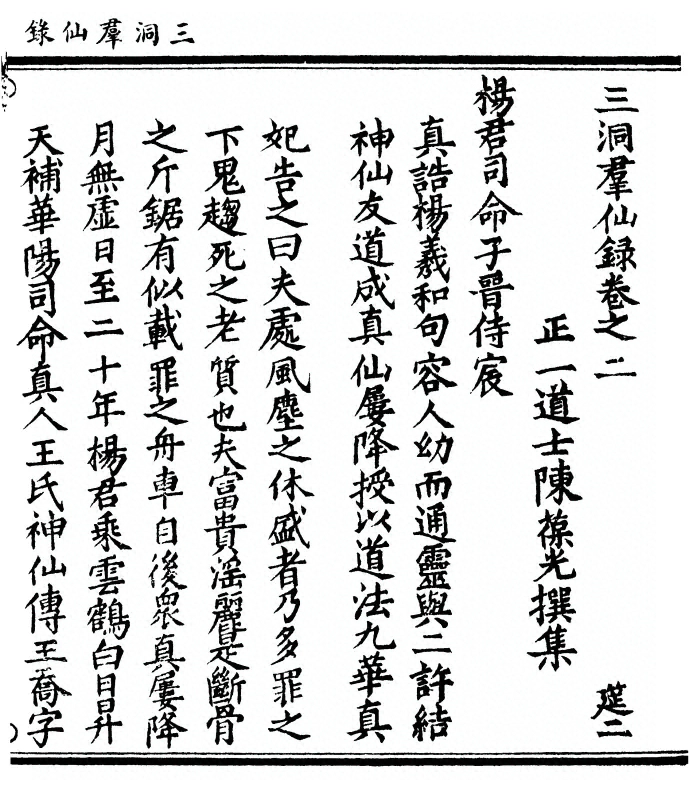 三洞羣仙錄
三洞羣仙録卷之二
筳二
正一道士陳葆光撰集
楊君司命子晉侍宸
真誥楊羲和句容人幼而通靈與二許結
神仙友道成真仙屢降授以道法九華真
妃告之曰夫處風塵之休盛者乃多罪之
下鬼趨死之老質也夫富貴滛麗是斷骨
之斤鋸有似載罪之舟車自後衆真屢降
月無虛日至二十年楊君乘雲鶴白日昇
天補華陽司命真人王氏神仙傳王喬字